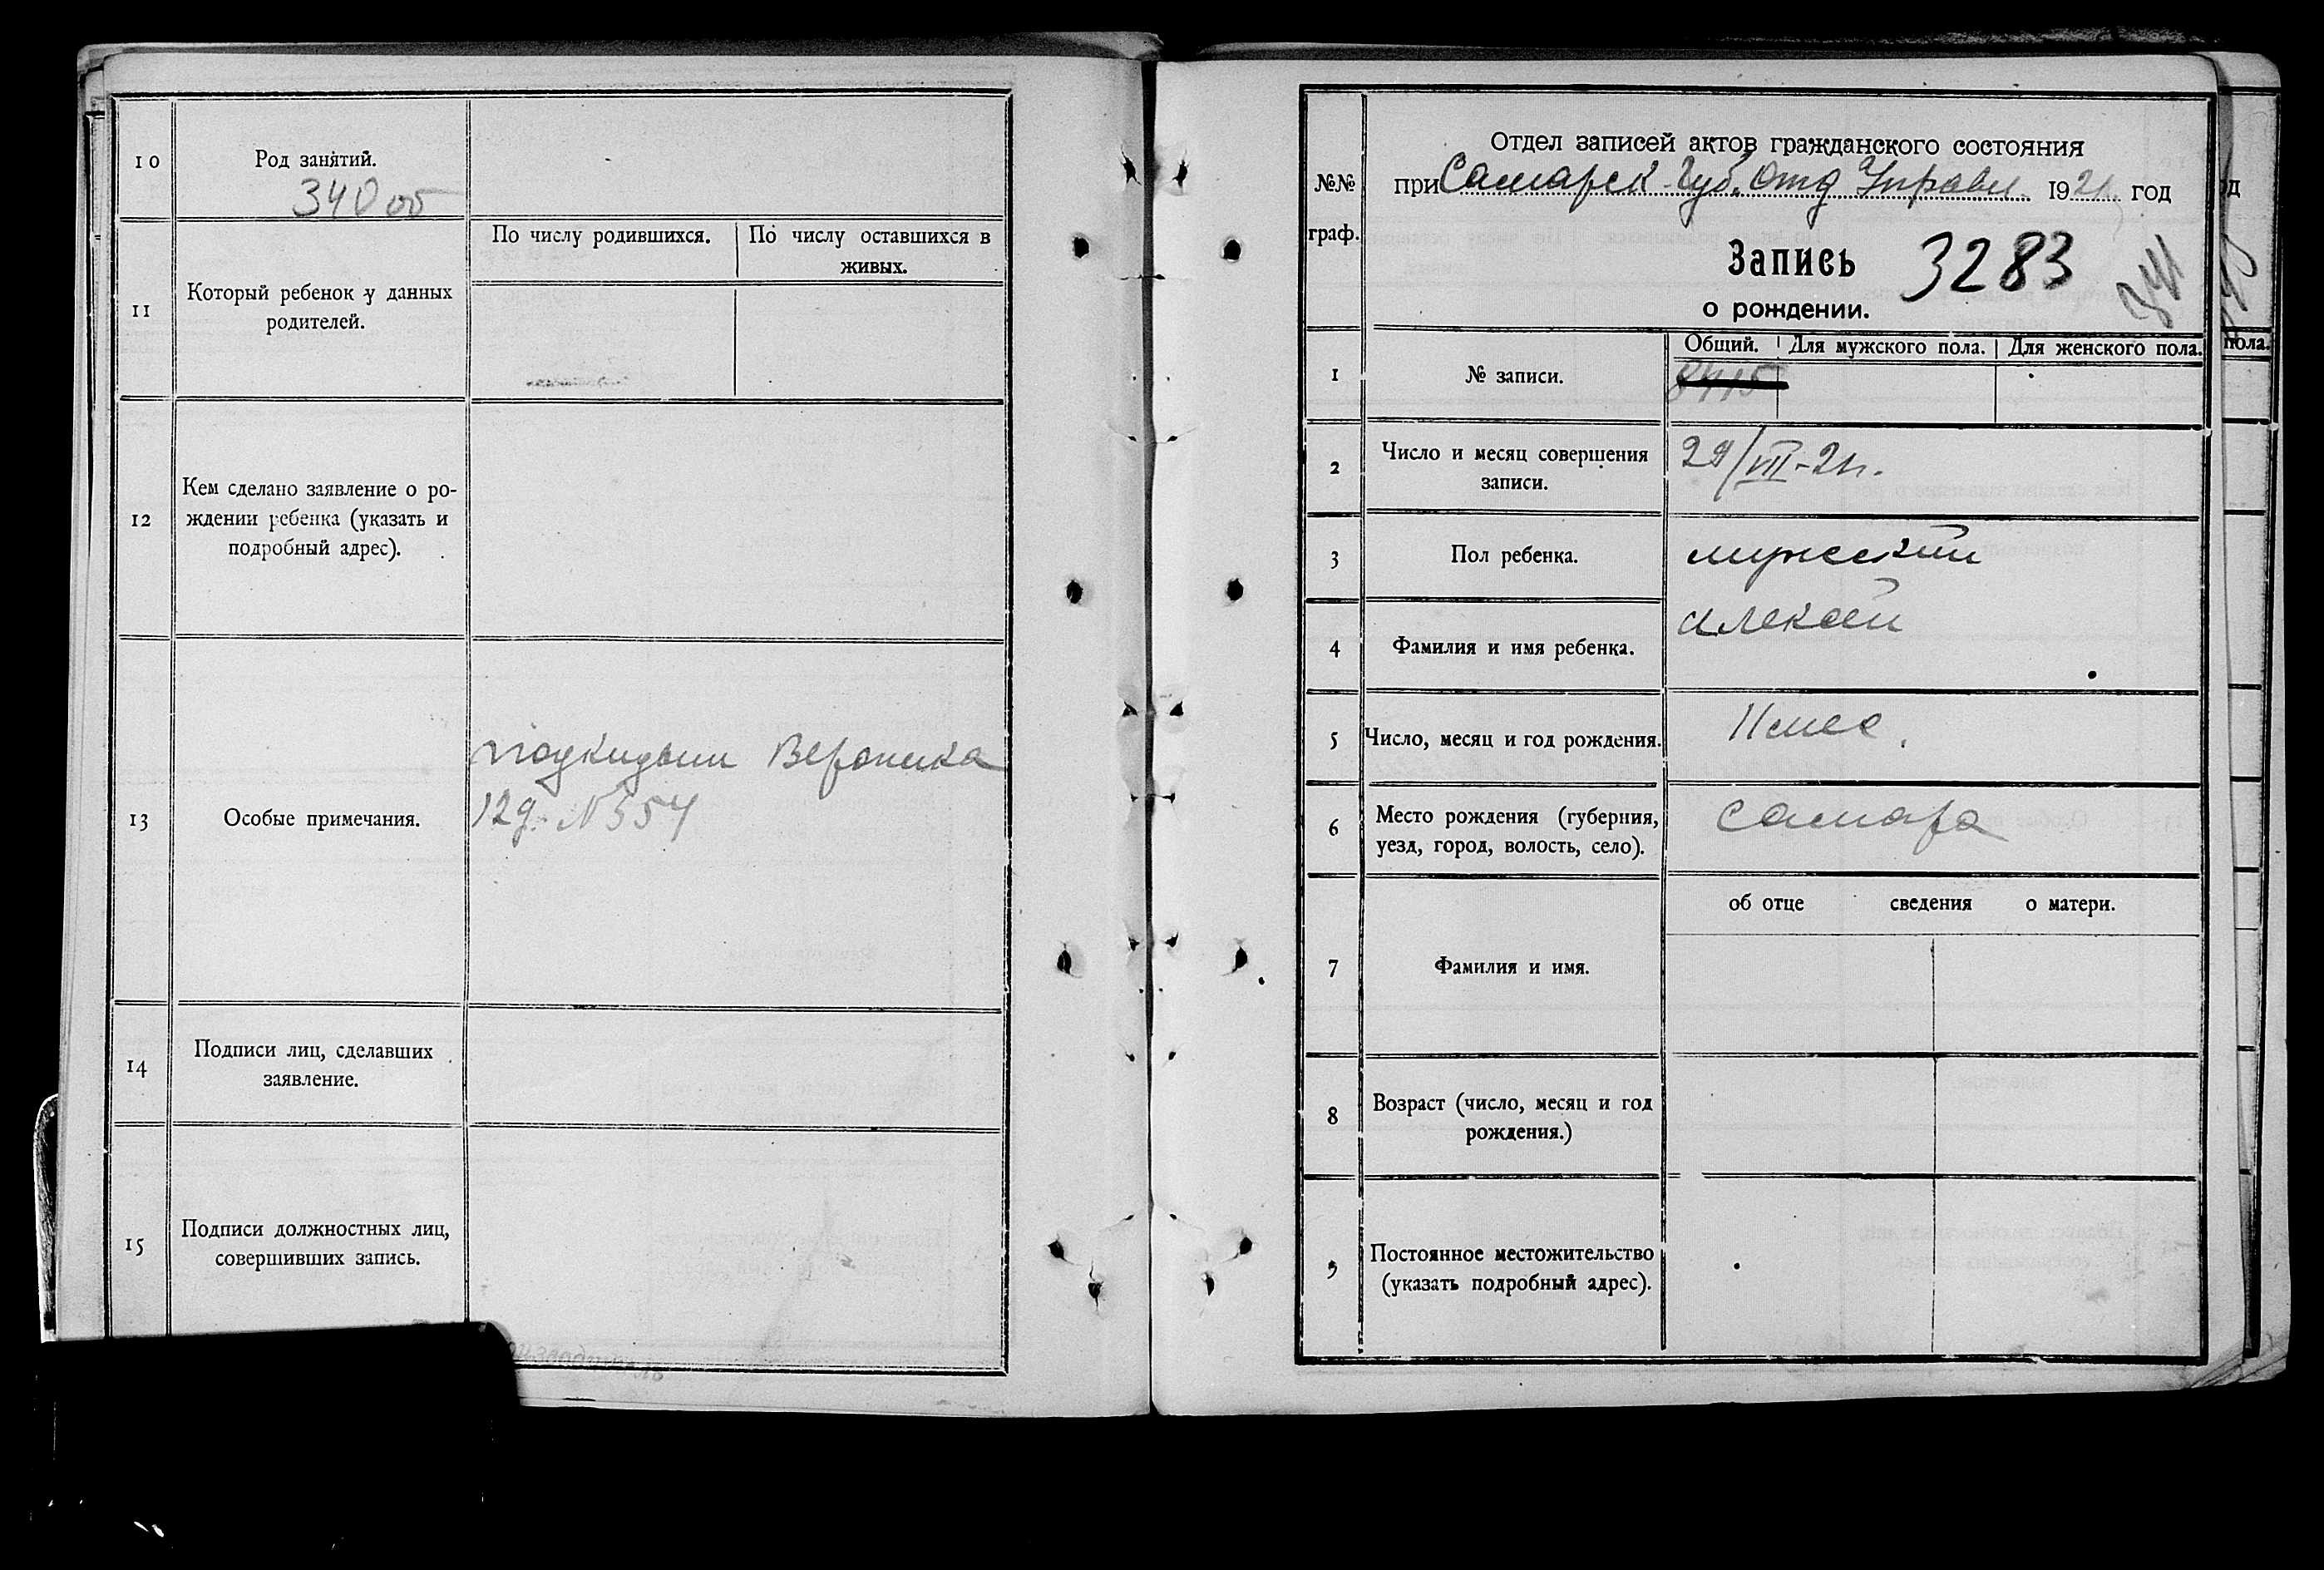 10
Род занятий.
340 об
11
Который ребенок у данных
родителей.
По числу родившихся.
По числу оставшихся в
живых.
12
Кем сделано заявление о ро-
ждении ребенка (указать и
подробный адрес).
13
Особые примечания.
подкидыш Вероника
12д. N 554
14
Подписи лиц, сделавших
заявление.
15
Подписи должностных лиц,
совершивших запись.
№№
граф.
Отдел записей актов гражданского состояния
при Самарск. Губ. Отд Управл. 1921 год
Запись 3283
о рождении.
341
1
№ записи.
Общий.
Для мужского пола.
Для женского пола.
2
Число и месяц совершения
записи.
29/VII-21г.
3
Пол ребенка.
мужский
4
Фамилия и имя ребенка.
Алексей
5
Число, месяц и год рождения.
6
Место рождения (губерния,
уезд, город, волость, село).
Самара
об отце сведения о матери.
7
Фамилия и имя.
8
Возраст (число, месяц и год
рождения.)
9
Постоянное местожительство
(указать подробный адрес).
пола.